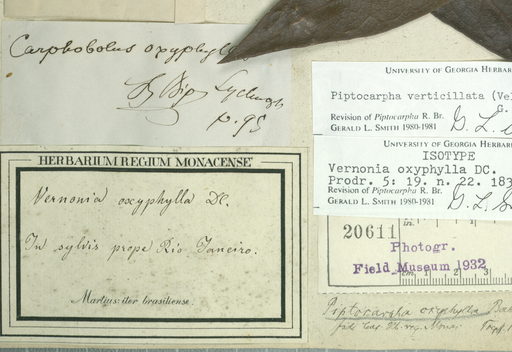 Carphobolus oxyphyllus
Sz Bip
p. 95
UNIVERSITY OF GEORGIA HERBAR
Piptocarpha verticillata (Vel
G.
Revision of Piptocarpha R. Br.
GERALD L. SMITH 1980-1981
UNIVERSITY OF GEORGIA HERBAR
ISOTYPE
Vernonia oxyphylla DC.
Prodr. 5: 19. n. 22. 183
Revision of Piptocarpha R. Br.
GERALD L. SMITH 1980-1981
HERBARIUM REGIUM MONACENSE
Vernonia oxyphylla DC.
In sylvis prope Rio Janeiro.
Martius: iter brasiliense.
20611
Photogr.
Field Museum 1932
cm. 1 2 3
Piptocarpha oxyphylla Bak